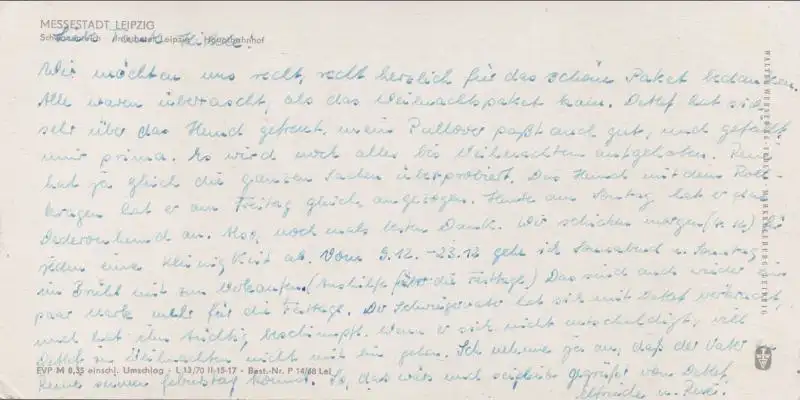 MESSESTADT LEIPZIG
Hauptbahnhof
Liebe Tante
Wir möchten uns recht, recht herzlich für das schöne Paket bedanken.
Alle waren überrascht, als das Weihnachtspaket kam. Detlef hat sich
sehr über das Hemd gefreut, mein Pullover paßt auch gut, und gefällt
mir prima. Es wird noch alles bis Weihnachten aufgehoben. René
hat ja gleich die ganzen Sachen überprobiert. Das Hemd mit dem Roll-
kragen hat er am Freitag gleich angezogen. Heute am Sonntag hat er das
Dederonhemd an. Also, nochmals besten Dank. Wir schicken morgen
jeden eine Kleinigkeit ab. Vom 9.12. - 23.12 gehe ich Sonnabend u. Sonntag
im Brühl mit zum Verkaufen (Aushilfe für die Festtage.) Das sind auch wieder ein
paar Mark mehr für die Festtage. Der Schwiegervater hat sich mit Detlef verkracht,
und hat ihn tüchtig beschimpft. Wenn er sich nicht entschuldigt, will
Detlef zu Weihnachten nicht mit hin gehen. Ich nehme ja an, daß der Vater zu
Renés Geburtstag kommt. So, das wärs und seid gegrüßt von Detlef,
Elfriede u. René.
EVP M 0,35 einschl. Umschlag · L 13/70 II-15-17 · Best.-Nr. P 14/68 Lei